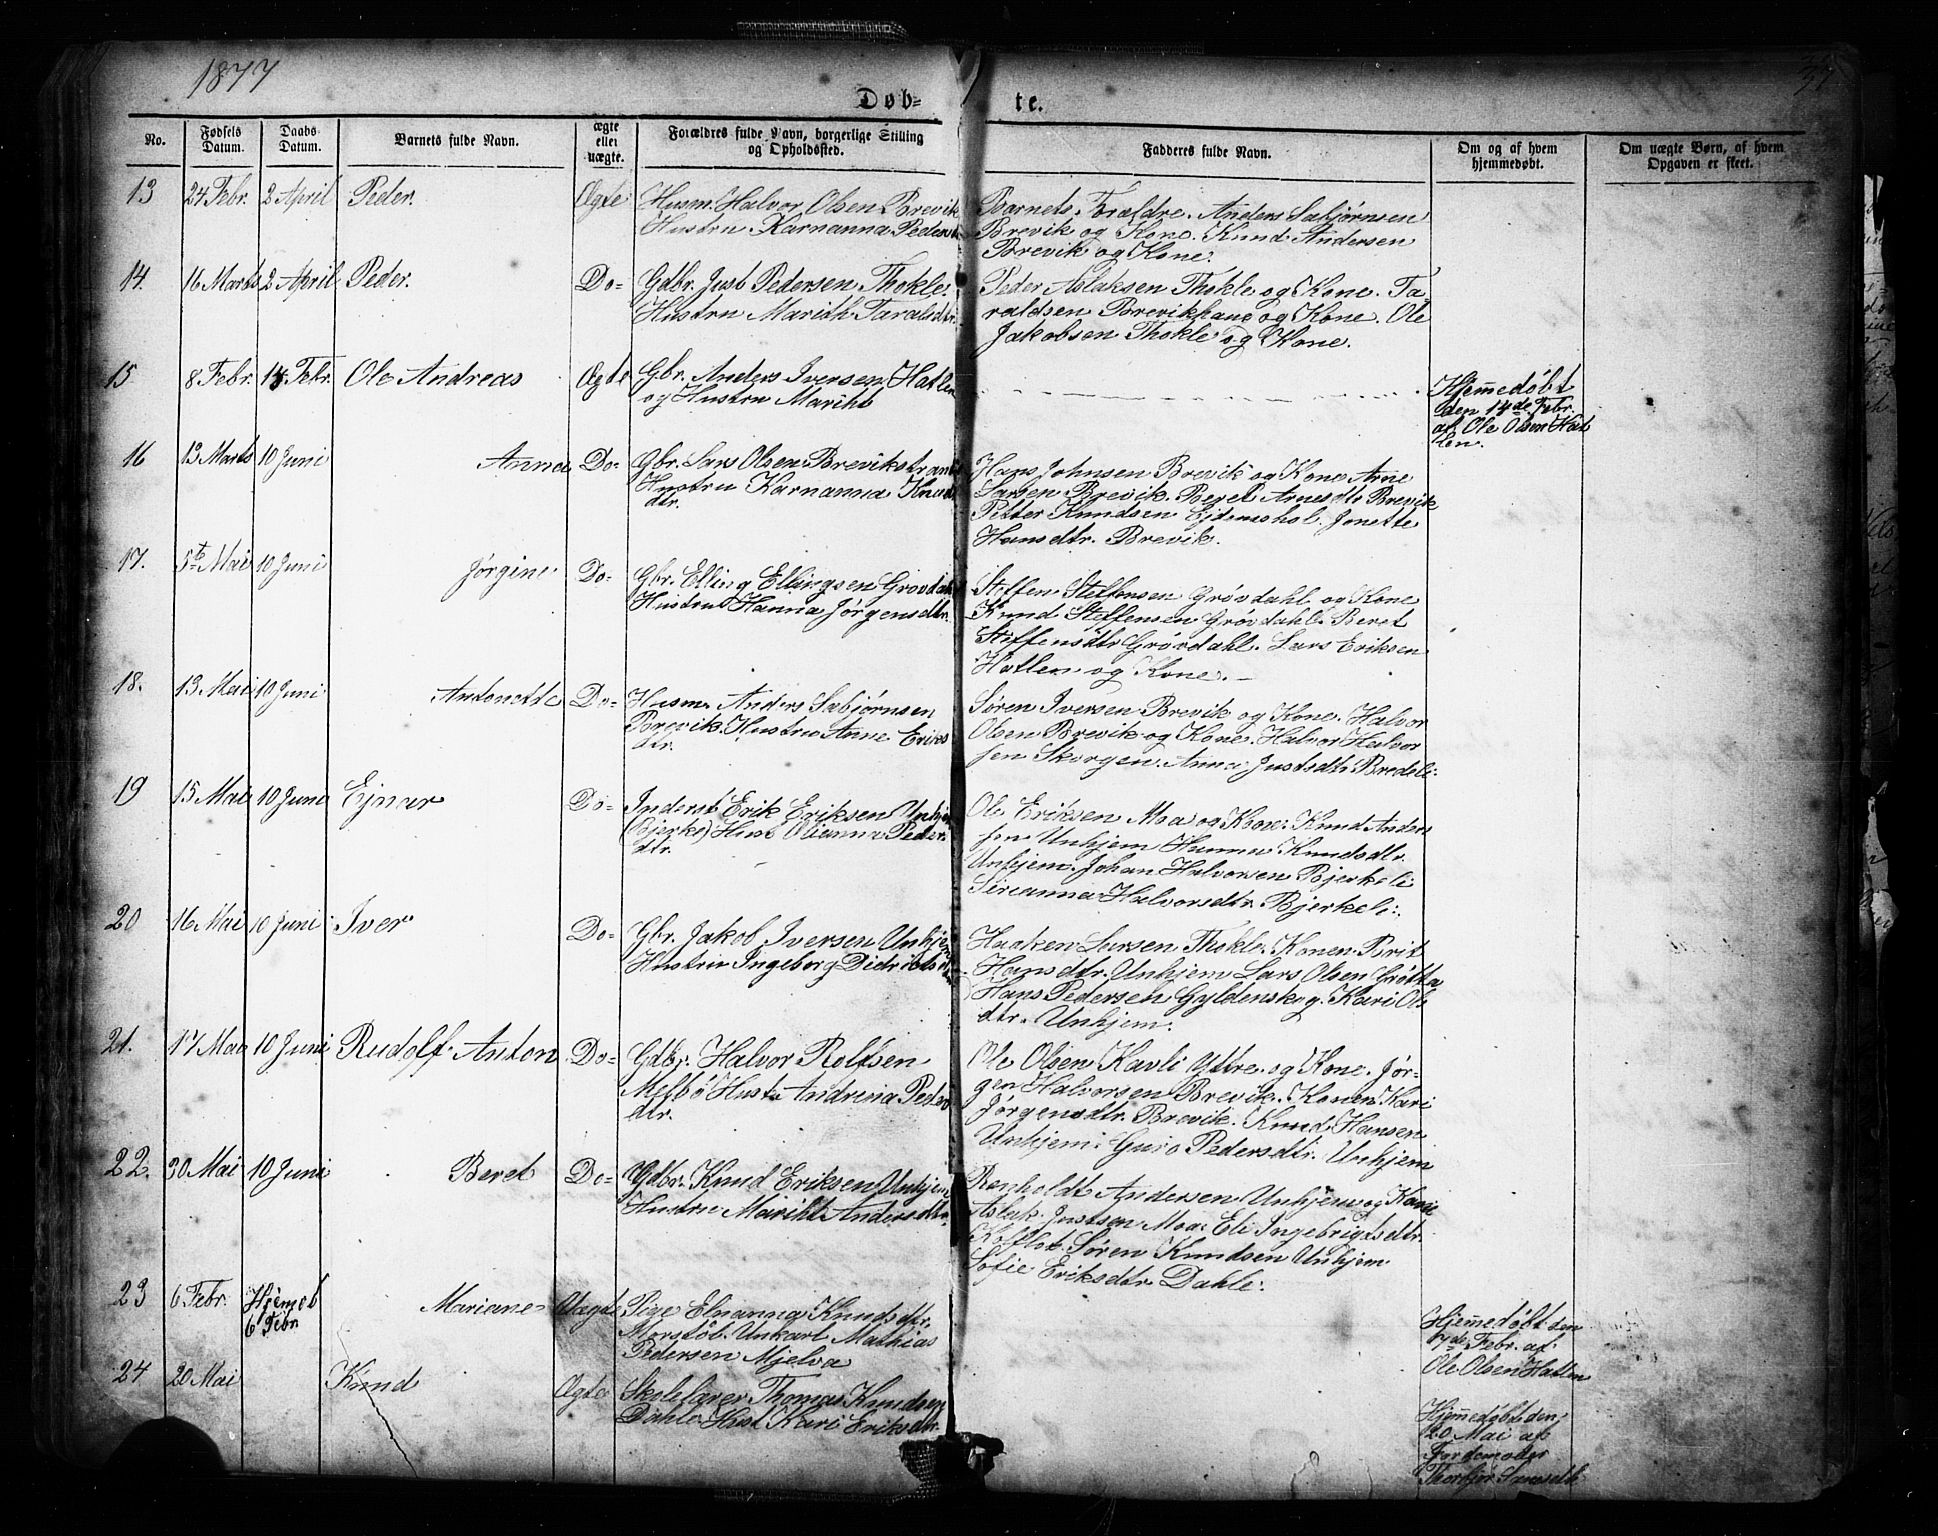 1877
37
Døb-
te.
No.
Fødsels Datum.
Daabs Datum.
Barnets fulde Navn.
ægte eller uægte.
Forældres fulde Navn, borgerlige Stilling og Opholdssted.
Fadderes fulde Navn.
Om og af hvem hjemmedøbt.
Om uægte Børn, af hvem Opgaven er skeet.
13 24 Febr. 2 April Peder. Ægte
Husm. Halvor Olsen Brevik
Hustru Karnanna
Barnets Forældre. Anders Sæbjørnsen
Brevik og Kone. Knud Andersen
Brevik og Kone.
14. 16 Marts 2 April Peder. Do-
Gdbr. Just Pedersen Thokle.
Hustru Marith Taralsdtr.
Peder Aslaksen Thokle og Kone. Ta-
raldsen Brevikhaug og Kone. Ole
Jakobsen Thokle og Kone.
15 8 Febr. 14 Febr. Ole Andreas Ægte
Gbr. Anders Iversen Hatlen
og Hustru Mariht
Hjemmedøbt
den 14de Febr.
af Ole Olsen Hat
len.
16 13 Marts 10 Juni Anna Do-
Gbr. Lars Olsen Brevikstrand
Hustru Karnanna Knuds
dtr.
Hans Johnsen Brevik og Kone Arne
Larsen Brevik. Beret Arnesdtr Brevik
Petter Knudsen Ejdemshol. Jonette
Hansdtr. Brevik.
17. 5te Mai 10 Juni Jørgine Do-
Gbr. Elling Ellingsen Grovdahl
Hustru Hanna Jørgensdtr.
Steffen Steffensen Grøvdahl og Kone
Knud Steffensen Grøvdahl. Beret
Steffensdtr Grøvdahl. Lars Eriksen
Hatlen og Kone.
18. 13 Mai 10 Juni Antonette Do-
Husm. Anders Sæbjørnsen
Brevik. Hustru Anne Eriks
dtr.
Søren Iversen Brevik og Kone. Halvor
Olsen Brevik og Kone. Halvor Halvor
sen Skorgen. Anna Justsdtr Bredeli.
19 15 Mai 10 Juni Ejnar Do-
Inderst Erik Eriksen Unhjem
(Bjerke) Hust Olianna Peder.
dtr.
Ole Eriksen Moa og Kone. Knud Anders
sen Unhjem Hanna Knudsdtr.
Unhjem. Johan Halvorsen Bjerkeli
Sirianna Halvorsdtr. Bjerkeli.
20 16 Mai 10 Juni Iver Do-
Gbr. Jakob Iversen Unhjem
Hustru Ingeborg
Haaken Larsen Thokle. Konen Brit
Hansdtr. Unhjem Lars Olsen Grøtta
Hans Pedersen Gyldenskog. Kari Ols
dtr. Unhjem.
21. 17 Mai 10 Juni Rudolf Anton Do-
Gdbr. Halvor Rolfsen
Melbø Hust. Andrina Peders
dtr.
Ole Olsen Kavli Yttre og Kone. Jør-
gen Halvorsen Brevik. Konen Kari
Jørgensdtr. Brevik. Knud Hansen
Unhjem. Guro Pedersdtr. Unhjem
22. 30 Mai 10 Juni Beret Do-
Gdbr. Knud Eriksen Unhjem
Hustru Mariht Andersdtr.
Renholdt Andersen Unhjem og Kone
Aslak Justsen Moa. Eli Ingebrigtsdtr.
Kofflot. Søren Knudsen Unhjem
Sofie Eriksdtr Dahle.
23 6 Febr. Hjemed
6 Febr
Mariane Uægte
Pige Elnanna Knudsdtr.
Morstøl. Unkarl Mathias
Pedersen Mjelva
Hjemmedøbt den
7de Febr. af
Ole Olsen Hatlen
24 20 Mai Knud Ægte
Skolelærer Thomas Knudsen
Dahle Hust Kari Eriksdtr.
Hjemmedøbt den
20 Mai af
Jordemoder